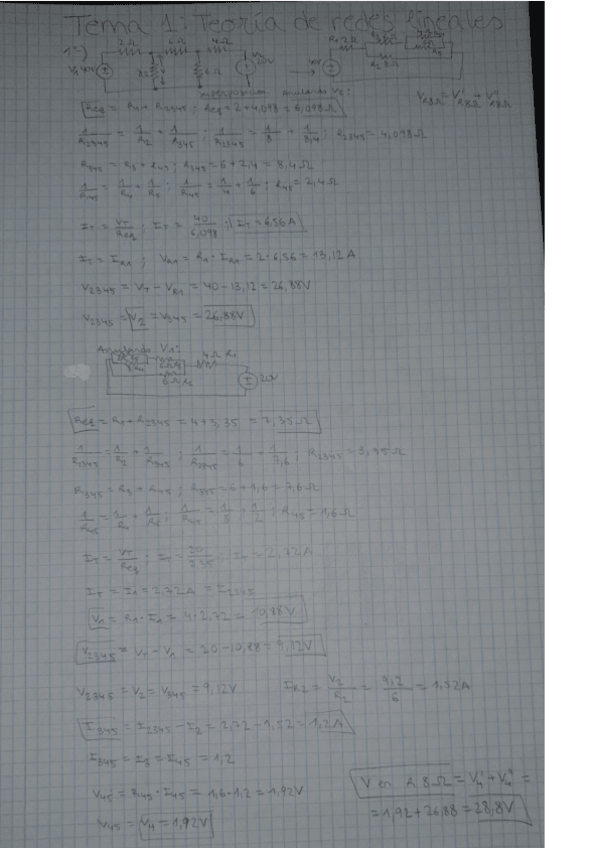 Tema 1: Teoría de redes lineales
1º)
2Ω 6Ω 4Ω
V₁ 40V 8Ω V 6Ω V₂ 20V
R₁ 2Ω
R₂ 8Ω
superposición anulando V₂: V₈Ω = V'₈Ω + V''₈Ω
Req = R₁ + R₂₃₄₅ ; Req = 2 + 4,098 = 6,098Ω
1/R₂₃₄₅ = 1/R₂ + 1/R₃₄₅ ; 1/R₂₃₄₅ = 1/8 + 1/8,4 ; R₂₃₄₅ = 4,098Ω
R₃₄₅ = R₃ + R₄₅ ; R₃₄₅ = 6 + 2,4 = 8,4Ω
1/R₄₅ = 1/R₄ + 1/R₅ ; 1/R₄₅ = 1/4 + 1/6 ; R₄₅ = 2,4Ω
I_T = V_T/Req ; I_T = 40/6,098 ; I_T = 6,56A
I_T = I_R1 ; V_R1 = R₁ · I_R1 = 2 · 6,56 = 13,12 A
V₂₃₄₅ = V_T - V_R1 = 40 - 13,12 = 26,88V
V₂₃₄₅ = V₂ = V₃₄₅ = 26,88V
Anulando V₁:
4Ω R₁
6Ω R₂
20V
Req = R₁ + R₂₃₄₅ = 4 + 3,35 = 7,35Ω
1/R₂₃₄₅ = 1/R₂ + 1/R₃₄₅ ; 1/R₂₃₄₅ = 1/6 + 1/7,6 ; R₂₃₄₅ = 3,35Ω
R₃₄₅ = R₃ + R₄₅ ; R₃₄₅ = 6 + 1,6 = 7,6Ω
1/R₄₅ = 1/R₄ + 1/R₅ ; 1/R₄₅ = 1/8 + 1/2 ; R₄₅ = 1,6Ω
I_T = V_T/Req ; I_T = 20/7,35 ; I_T = 2,72A
I_T = I₁ = 2,72A = I₂₃₄₅
V₁ = R₁ · I₁ = 4 · 2,72 = 10,88V
V₂₃₄₅ = V_T - V₁ = 20 - 10,88 = 9,12V
V₂₃₄₅ = V₂ = V₃₄₅ = 9,12V I_R2 = V₂/R₂ = 9,12/6 = 1,52A
I₃₄₅ = I₂₃₄₅ - I₂ = 2,72 - 1,52 = 1,2A
I₃₄₅ = I₃ = I₄₅ = 1,2
V₄₅ = R₄₅ · I₄₅ = 1,6 · 1,2 = 1,92V
V₄₅ = V₄ = 1,92V
V en R 8Ω = V₄' + V₄'' =
= 1,92 + 26,88 = 28,8V